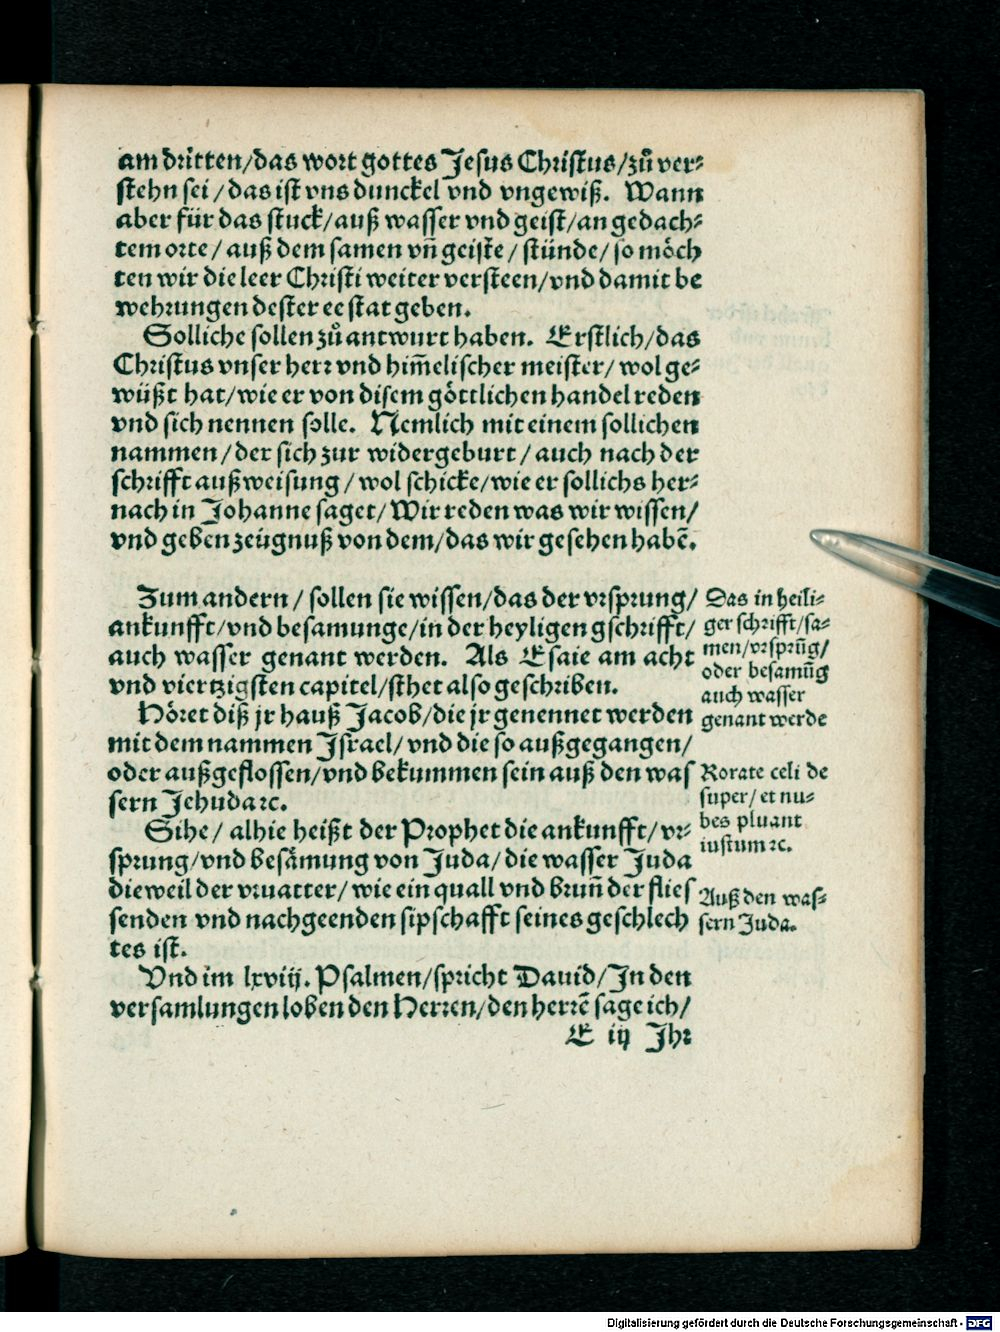 am dritten/das wort gottes Jesus Christus/zů ver⸗
stehn sei/das ist vns dunckel vnd vngewiß. Wann
aber für das stuck/auß wasser vnd geist/an gedach⸗
tem orte/auß dem samen vñ geiste/stünde/so möch
ten wir die leer Christi weiter versteen/vnd damit be
wehrungen dester ee stat geben.
Solliche sollen zů antwurt haben. Erstlich/das
Christus vnser herr vnd him̃elischer meister/wol ge⸗
wüßt hat/wie er von disem göttlichen handel reden
vnd sich nennen solle. Nemlich mit einem sollichen
nammen/der sich zur widergeburt/auch nach der
schrifft außweisung/wol schicke/wie er sollichs her⸗
nach in Johanne saget/Wir reden was wir wissen/
vnd geben zeügnuß von dem/das wir gesehen habẽ.
Zum andern/sollen sie wissen/das der vrsprung/
ankunfft/vnd besamunge/in der heyligen gschrifft/
auch wasser genant werden. Als Esaie am acht
vnd viertzigsten capitel/sthet also geschriben.
Höret diß jr hauß Jacob/die jr genennet werden
mit dem nammen Israel/vnd die so außgegangen/
oder außgeflossen/vnd bekummen sein auß den was
sern Jehuda ꝛc.
Sihe/alhie heißt der Prophet die ankunfft/vr⸗
sprung/vnd besämung von Juda/die wasser Juda
dieweil der vrvatter/wie ein quall vnd brun̄ der flies
senden vnd nachgeenden sipschafft seines geschlech
tes ist.
Vnd im lxviij. Psalmen/spricht Dauid/In den
versamlungen loben den Herren/den herrẽ sage ich/
E iij Ihr
Das in heili⸗
ger schrifft/sa⸗
men/vrsprūg/
oder besamūg
auch wasser
genant werde
Rorate celi de
super/et nu⸗
bes pluant
iustum ꝛc.
Auß den was⸗
sern Juda.
Digitalisierung gefördert durch die Deutsche Forschungsgemeinschaft - DFG